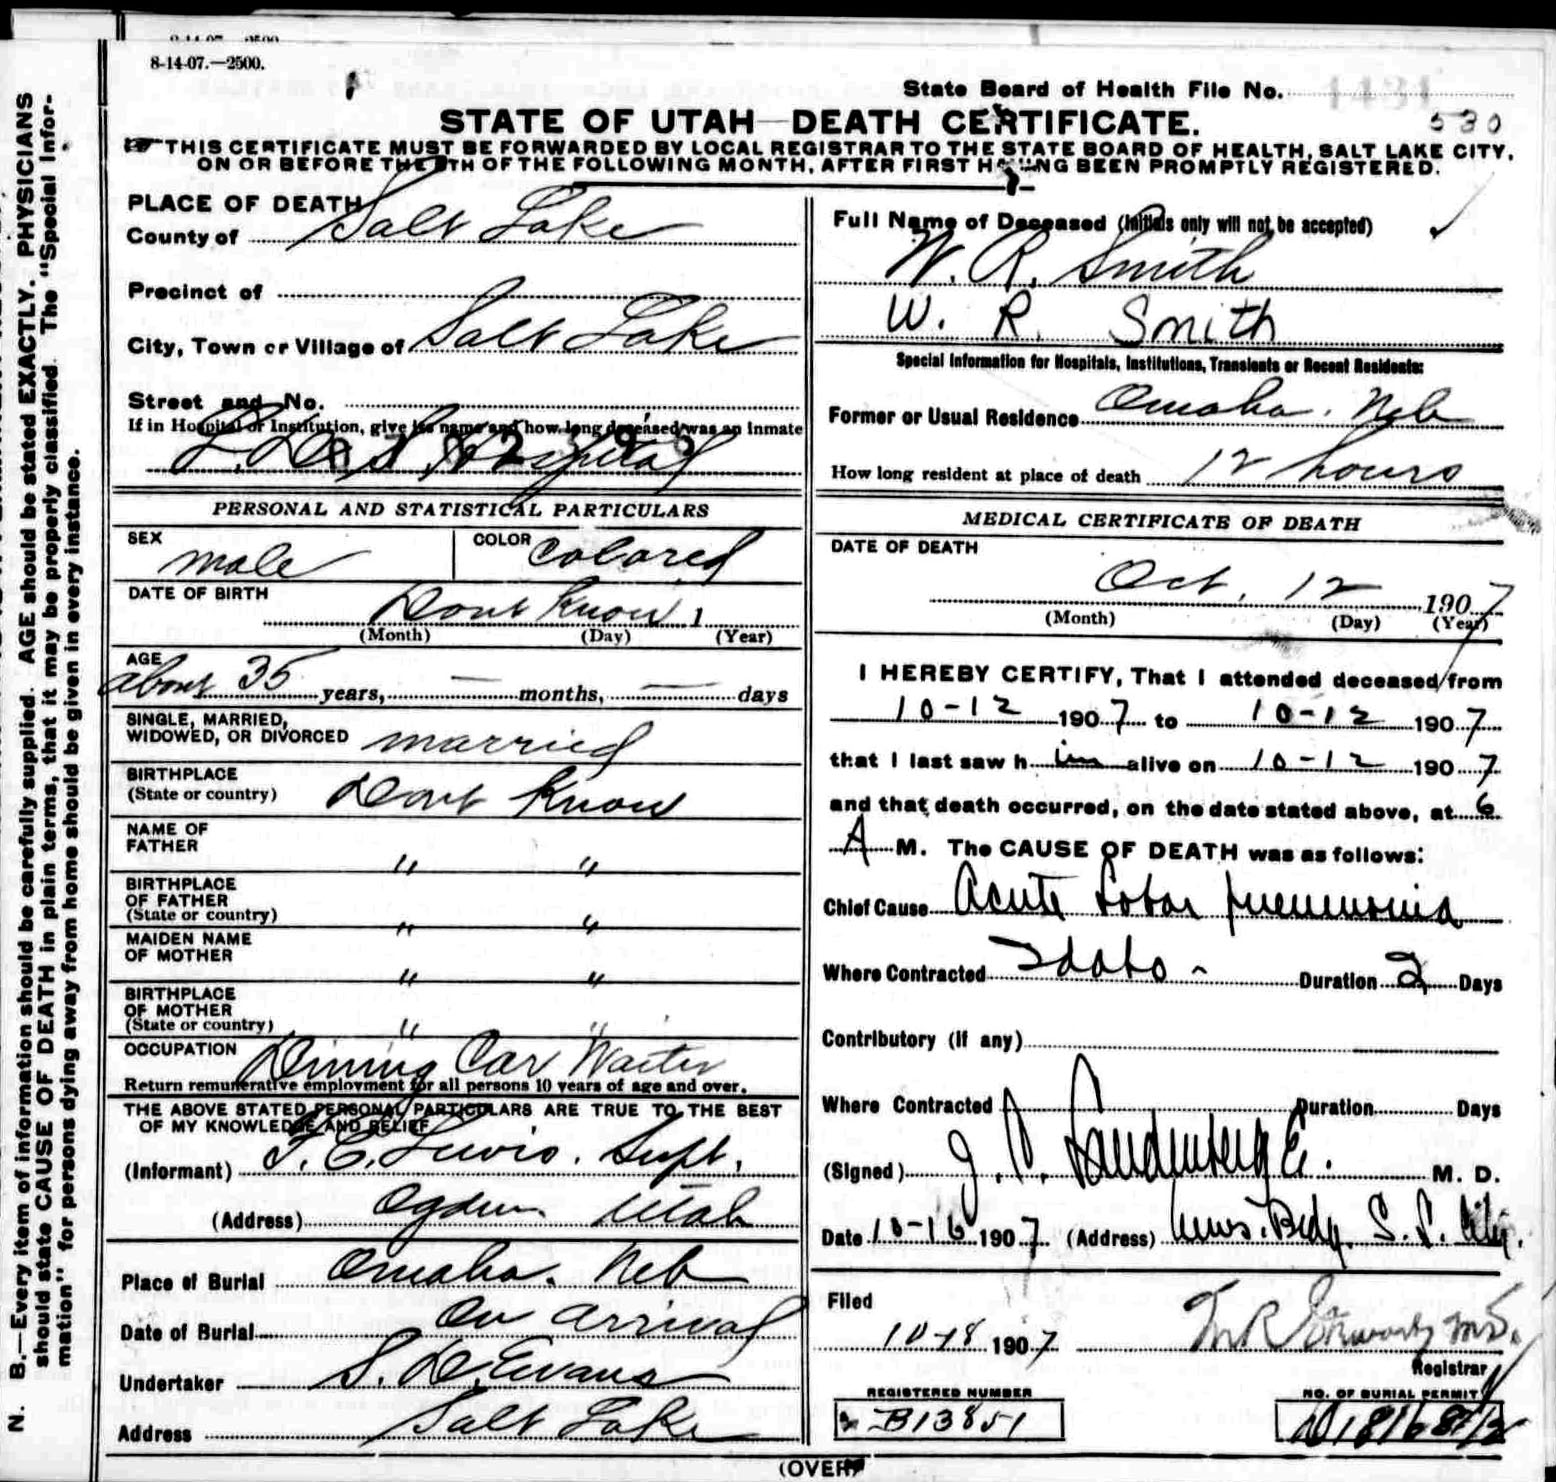 8-14-07.—2500.
State Board of Health File No. 1431
STATE OF UTAH—DEATH CERTIFICATE. 530
THIS CERTIFICATE MUST BE FORWARDED BY LOCAL REGISTRAR TO THE STATE BOARD OF HEALTH, SALT LAKE CITY,
ON OR BEFORE THE 5TH OF THE FOLLOWING MONTH, AFTER FIRST HAVING BEEN PROMPTLY REGISTERED.
N. B.—Every item of information should be carefully supplied. AGE should be stated EXACTLY. PHYSICIANS
should state CAUSE OF DEATH in plain terms, that it may be properly classified. The "Special Infor-
mation" for persons dying away from home should be given in every instance.
PLACE OF DEATH
County of Salt Lake
Precinct of
City, Town or Village of Salt Lake
Street and No.
If in Hospital or Institution, give its name and how long deceased was an inmate
L. D. S. Hospital
PERSONAL AND STATISTICAL PARTICULARS
SEX male COLOR Colored
DATE OF BIRTH Dont Know 1
(Month) (Day) (Year)
AGE about 35 years, — months, — days
SINGLE, MARRIED,
WIDOWED, OR DIVORCED married
BIRTHPLACE
(State or country) Dont Know
NAME OF
FATHER " "
BIRTHPLACE
OF FATHER
(State or country) " "
MAIDEN NAME
OF MOTHER " "
BIRTHPLACE
OF MOTHER
(State or country) " "
OCCUPATION Dining Car Waiter
Return remunerative employment for all persons 10 years of age and over.
THE ABOVE STATED PERSONAL PARTICULARS ARE TRUE TO THE BEST
OF MY KNOWLEDGE AND BELIEF
(Informant) T. E. Lewis. Supt.
(Address) Ogden Utah
Place of Burial Omaha. Neb
Date of Burial On arrival
Undertaker S. D. Evans
Address Salt Lake
Full Name of Deceased (Initials only will not be accepted)
W. R. Smith
W. R. Smith
Special Information for Hospitals, Institutions, Transients or Recent Residents:
Former or Usual Residence Omaha. Neb
How long resident at place of death 12 hours
MEDICAL CERTIFICATE OF DEATH
DATE OF DEATH
Oct. 12 1907
(Month) (Day) (Year)
I HEREBY CERTIFY, That I attended deceased from
10-12 1907 to 10-12 1907
that I last saw h im alive on 10-12 1907
and that death occurred, on the date stated above, at 6
A M. The CAUSE OF DEATH was as follows:
Chief Cause Acute Lobar pneumonia
Where Contracted Idaho - Duration 2 Days
Contributory (if any)
Where Contracted Duration Days
(Signed) M. D.
Date 10-16 1907 (Address) News. Bldg. S. L. City.
Filed
10-18 1907 M.D.
Registrar
REGISTERED NUMBER
B13851
NO. OF BURIAL PERMIT
(OVER)